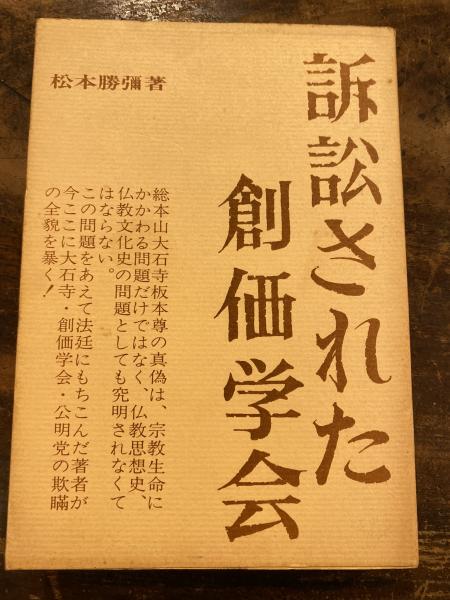 訴訟された
創価学会
松本勝彌著
総本山大石寺板本尊の真偽は、宗教生命に
かかわる問題だけではなく、仏教思想史、
仏教文化史の問題としても究明されなくて
はならない。
この問題をあえて法廷にもちこんだ著者が
今ここに大石寺・創価学会・公明党の欺瞞
の全貌を暴く!